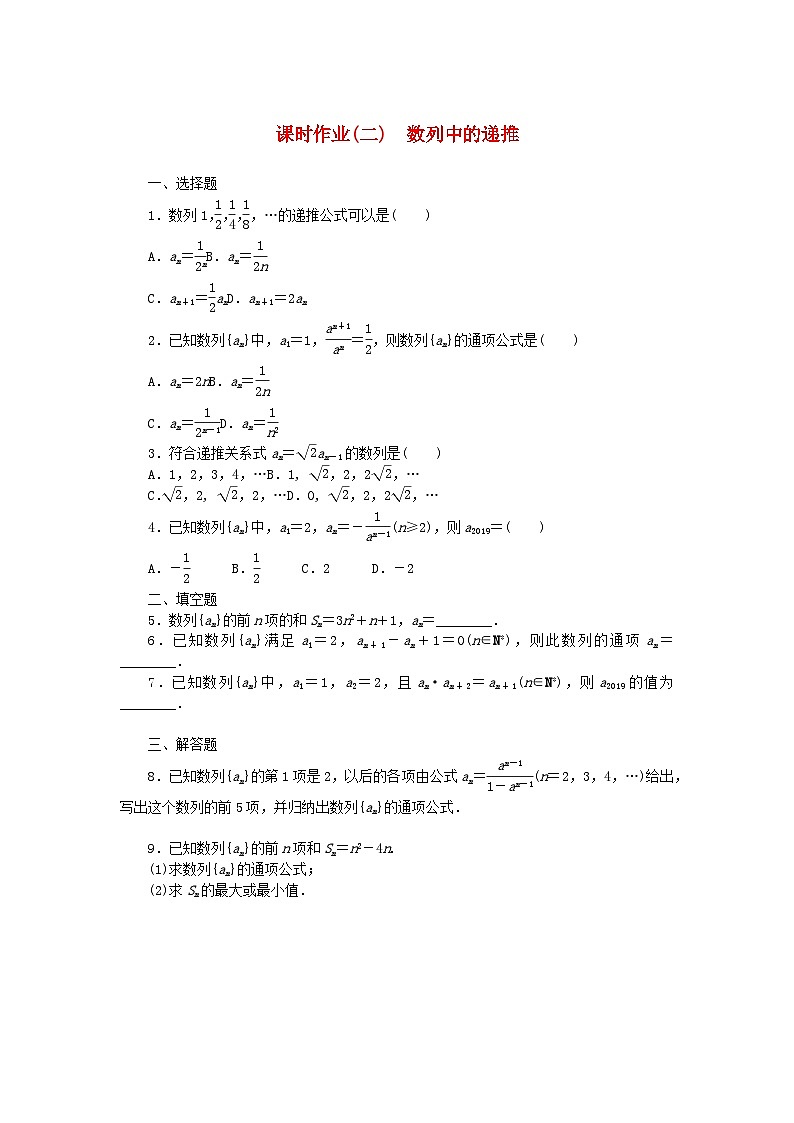 课时作业(二)　数列中的递推
一、选择题
1．数列1,1/2,1/4,1/8,…的递推公式可以是(　　)
A．aₙ＝1/2ⁿB．aₙ＝1/2n
C．aₙ₊₁＝1/2aₙD．aₙ₊₁＝2aₙ
2．已知数列{aₙ}中，a₁＝1，aⁿ⁺¹/aⁿ＝1/2，则数列{aₙ}的通项公式是(　　)
A．aₙ＝2nB．aₙ＝1/2n
C．aₙ＝1/2ⁿ⁻¹D．aₙ＝1/n²
3．符合递推关系式aₙ＝√2aₙ₋₁的数列是(　　)
A．1，2，3，4，…B．1, √2，2，2√2，…
C.√2，2, √2，2，…D．0, √2，2，2√2，…
4．已知数列{aₙ}中，a₁＝2，aₙ＝－1/aⁿ⁻¹(n≥2)，则a₂₀₁₉＝(　　)
A．－1/2　　B.1/2　　C．2　　D．－2
二、填空题
5．数列{aₙ}的前n项的和Sₙ＝3n²＋n＋1，aₙ＝________．
6．已知数列{aₙ}满足a₁＝2，aₙ₊₁－aₙ＋1＝0(n∈N*)，则此数列的通项aₙ＝
________．
7．已知数列{aₙ}中，a₁＝1，a₂＝2，且aₙ·aₙ₊₂＝aₙ₊₁(n∈N*)，则a₂₀₁₉的值为
________．
三、解答题
8．已知数列{aₙ}的第1项是2，以后的各项由公式aₙ＝aⁿ⁻¹/1－aⁿ⁻¹(n＝2，3，4，…)给出，
写出这个数列的前5项，并归纳出数列{aₙ}的通项公式．
9．已知数列{aₙ}的前n项和Sₙ＝n²－4n.
(1)求数列{aₙ}的通项公式；
(2)求Sₙ的最大或最小值．